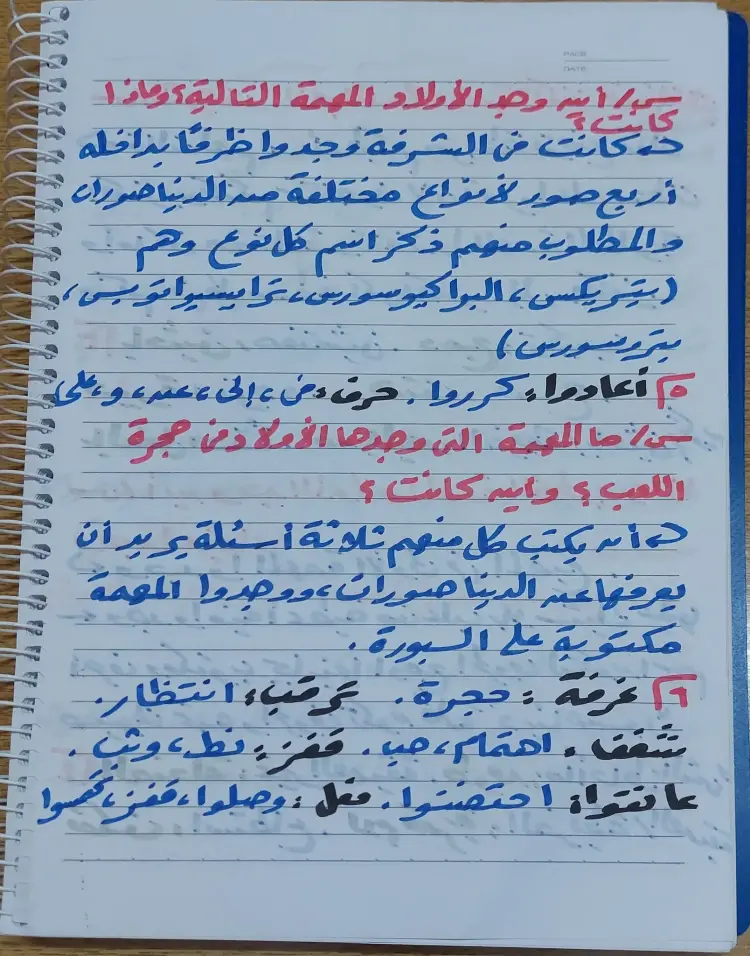 PAGE
DATE
س/ أين وجد الأولاد المهمة التالية؟ وماذا
كانت؟
كانت في الشرفة وجدوا ظرفًا بداخله
أربع صور لأنواع مختلفة من الديناصورات
والمطلوب منهم ذكر اسم كل نوع وهم
(تيريكس، البراكيوسورس، ترايسيراتوبس،
بتروسورس)
٥ أعادوا: كرروا. حرف: في، إلى، عن، و، على
س/ ما المهمة التي وجدها الأولاد في حجرة
اللعب؟ وأين كانت؟
أن يكتب كل منهم ثلاثة أسئلة يريد أن
يعرفها عن الديناصورات، ووجدوا المهمة
مكتوبة على السبورة.
٦ غرفة: حجرة. ترقب: انتظار.
شغف: اهتمام، حب. قفز: نط، وثب.
عانقوا: احتضنوا. فعل: وصلوا، قفز، تحمسوا